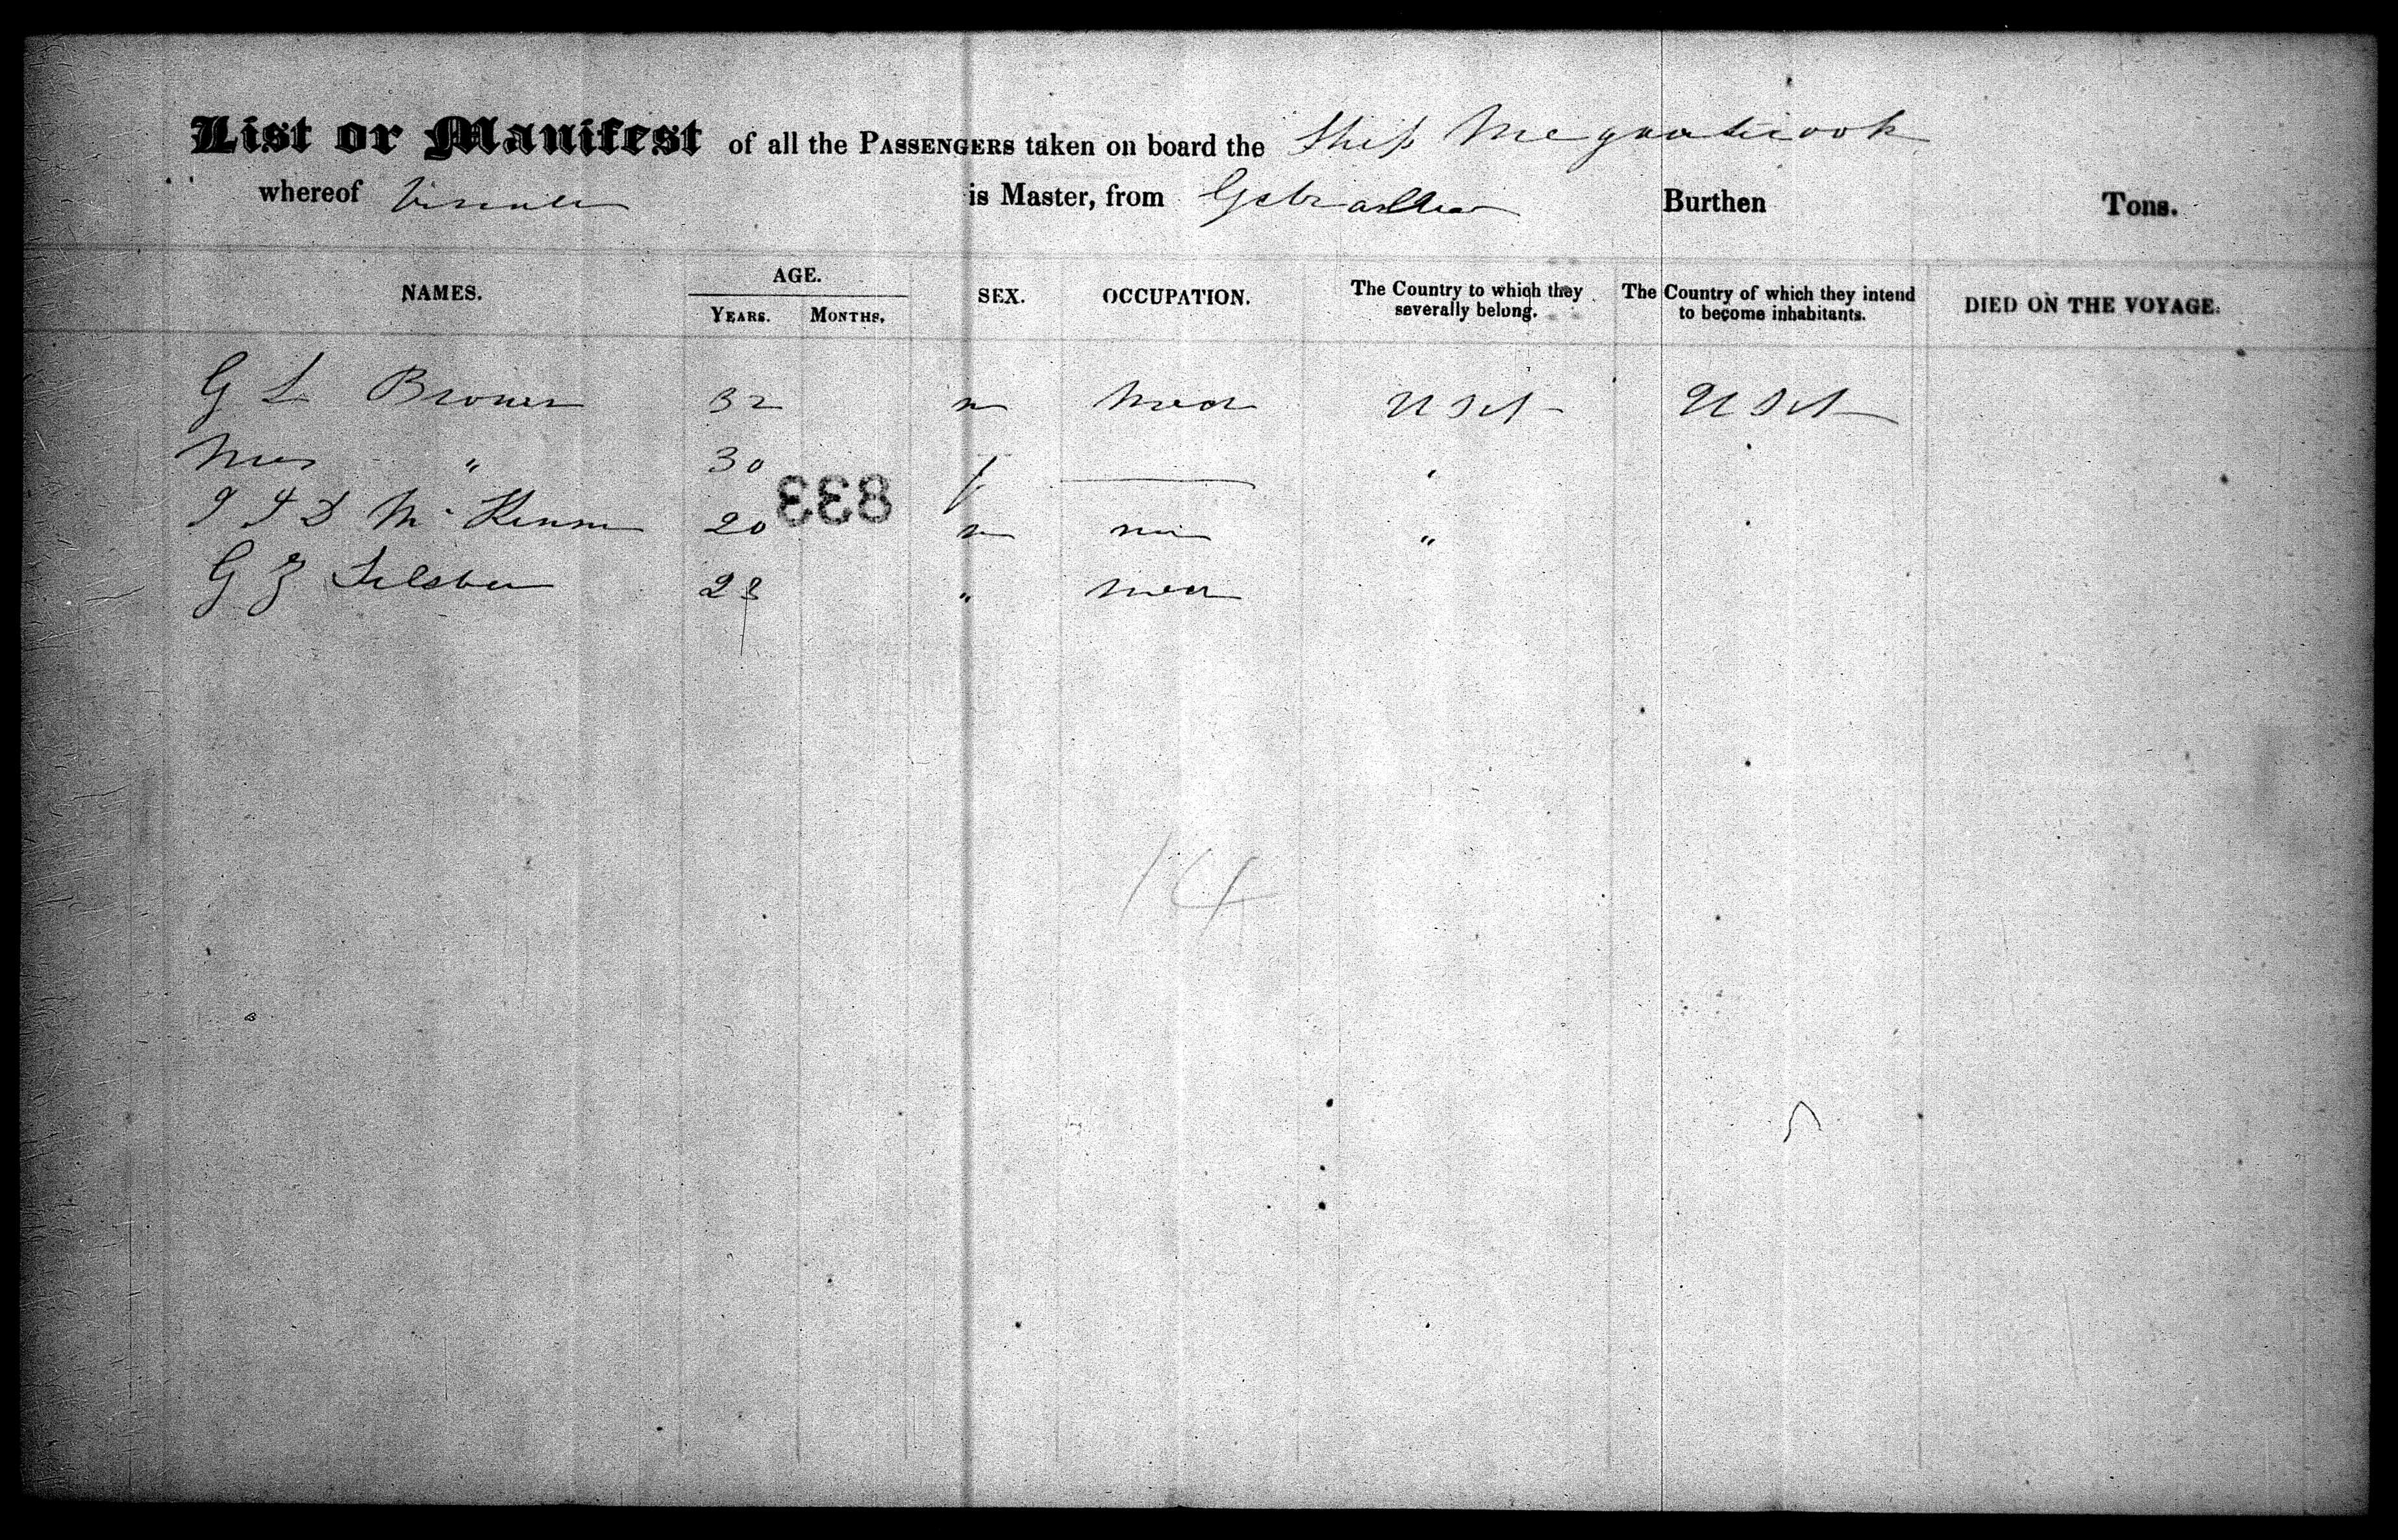 List or Manifest of all the PASSENGERS taken on board the Ship Megunticook
whereof is Master, from Gebralter Burthen Tons.
NAMES. AGE. SEX. OCCUPATION. The Country to which they severally belong. The Country of which they intend to become inhabitants. DIED ON THE VOYAGE.
YEARS. MONTHS.
G L Brower 32 m U S A U S A
Mrs " 30 f
McKenna 20 m "
G Z 28 "
833
14